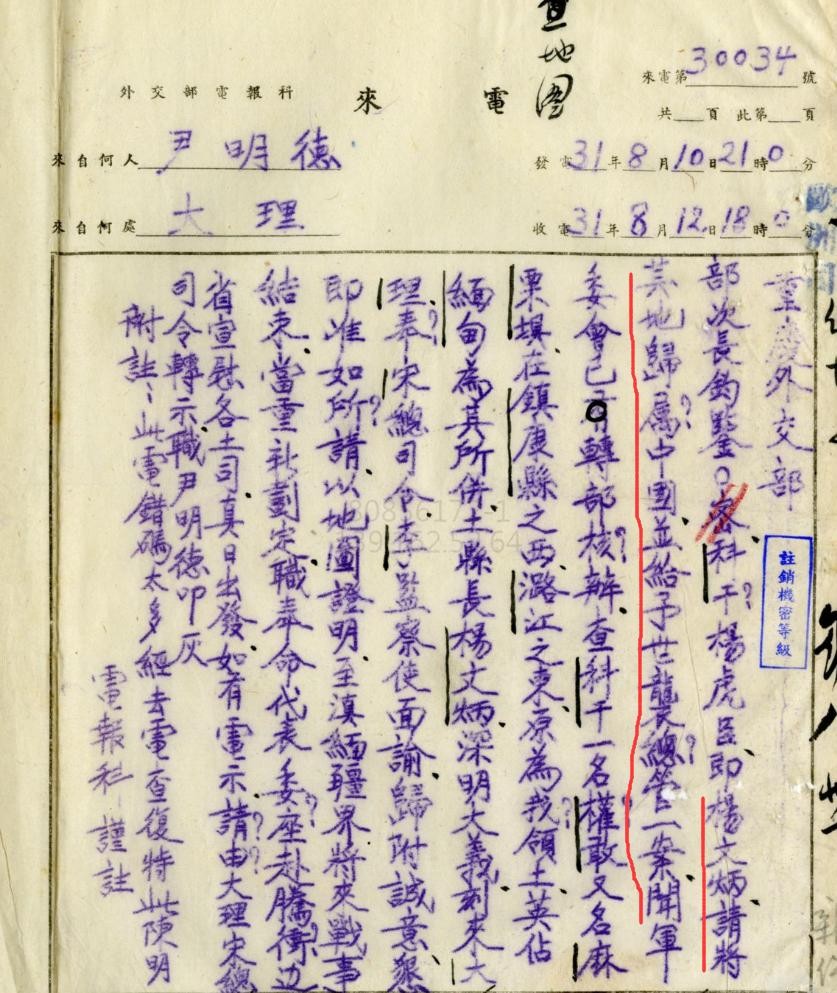 查地圖
來電第30034號
共 頁 此第 頁
外交部電報科 來電
來自何人 尹明德
發電31年8月10日21時0分
來自何處 大理
收電31年8月12日18時0分
重慶外交部
部次長鈞鑒○密科干?楊虎臣即楊文炳請將
其地歸?屬中國並給予世襲總?管一案聞軍
委會已○轉部核?辦查科干一名權?敢又名麻
栗埧在鎮康縣之西潞江之東原為?我領土英佔
緬甸為其所併土縣長楊文炳深明大義刻來大
理?奉宋總司令李監察使面諭歸附誠意懇
即准如所?請以地圖證明至滇緬疆界將來戰事
結束當重新劃定職奉命代表委?座赴騰衝?边
省宣慰各土司真日出發如有電示請??由大理宋總
司令轉示職尹明德叩灰
附註:此電錯碼太多經去電查復特此陳明
電報科謹註
註銷機密等級